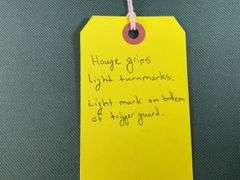 Houge grips
Light turnmarks.
Light mark on bottem
of trigger guard.